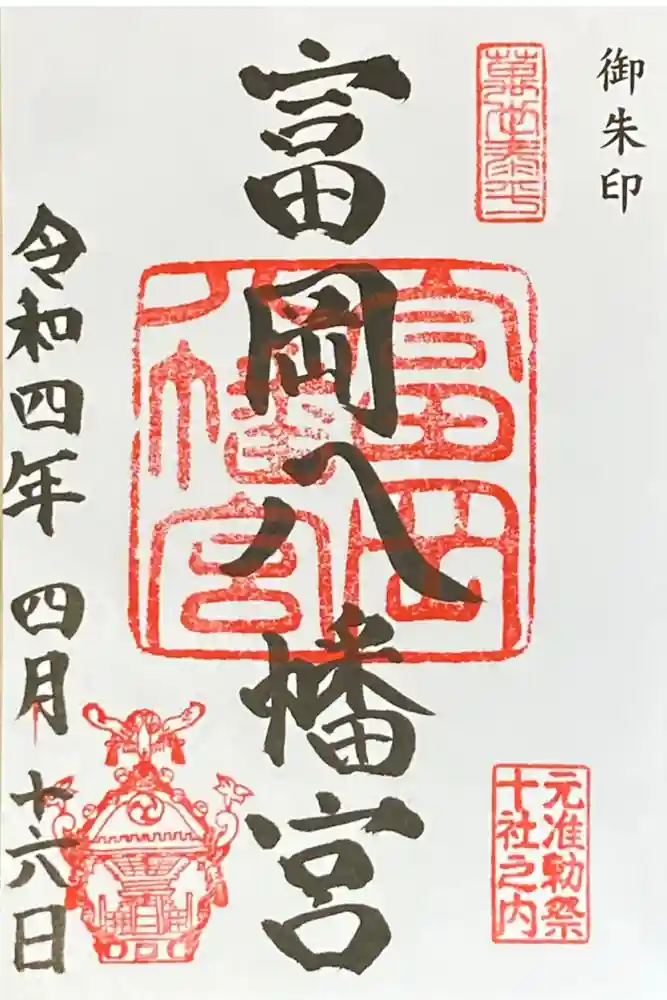 御朱印
萬世泰平
富岡八幡宮
富岡
八幡宮
元准勅祭
十社之内
令和四年 四月 十六日